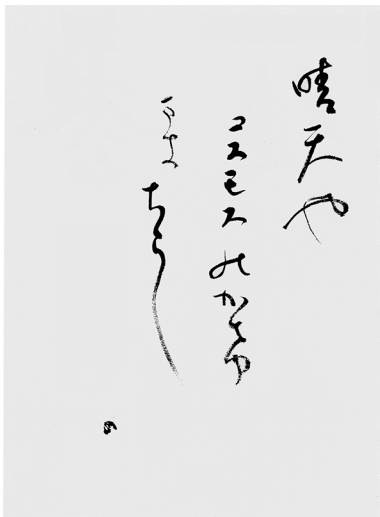 晴天や
コスモスのかけ
まきちらし